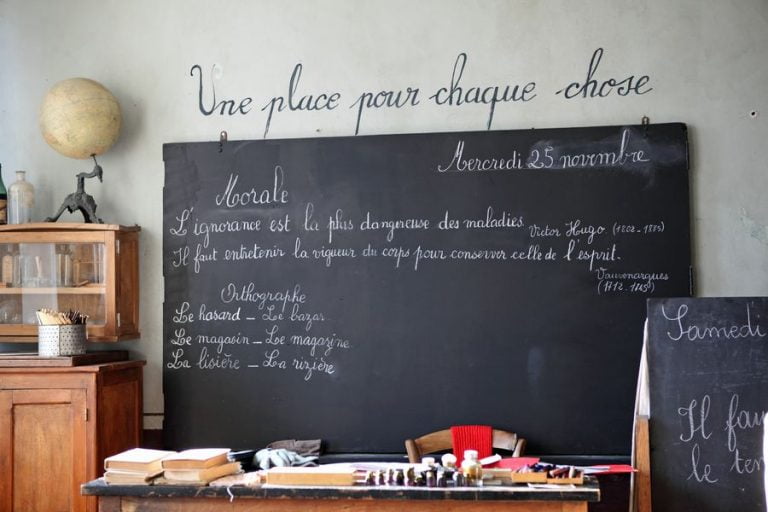 Une place pour chaque chose
Mercredi 25 novembre
Morale
L'ignorance est la plus dangereuse des maladies. Victor Hugo (1802-1885)
Il faut entretenir la vigueur du corps pour conserver celle de l'esprit.
Vauvenargues
Orthographe
Le hasard _ Le bazar
Le magasin _ Le magazine
La lisière _ La rizière
Samedi
Il fau
le ten